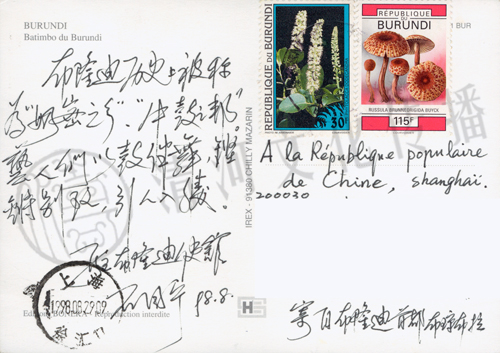 BURUNDI
Batimbo du Burundi
布隆迪历史上被称
为"奶蜜之乡""牛鼓之邦"。
藝人们以鼓伴舞,
特别致,引人入
驻布隆迪使館
98.8.
上海
1998.08.29.09
IREX - 91380 CHILLY MAZARIN
REPUBLIQUE DU BURUNDI
30
REPUBLIQUE
DU
BURUNDI
RUSSULA BRUNNEORIGIDA BUYCK
115F
BUR
A la République populaire
de Chine, shanghai.
200030
寄自布隆迪首都布琼布拉
Reproduction interdite